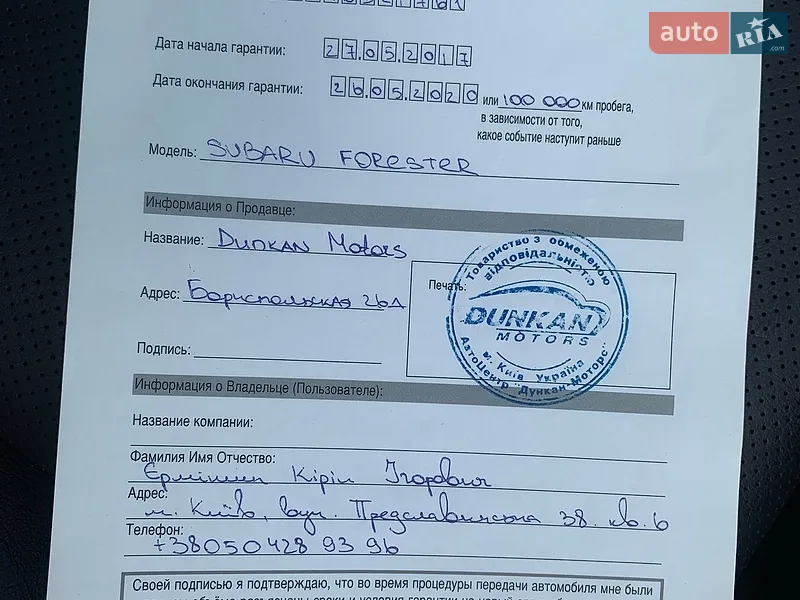 auto RIA .com
Дата начала гарантии: 27.05.2017
Дата окончания гарантии: 26.05.2020 или 100 000 км пробега,
в зависимости от того,
какое событие наступит раньше
Модель: SUBARU FORESTER
Информация о Продавце:
Название: DUNKAN Motors
Адрес: Бориспольская 26д
Печать:
Товариство з обмеженою
відповідальністю
DUNKAN
MOTORS
м. Київ Україна
Автоцентр "Дункан-Моторс"
Подпись:
Информация о Владельце (Пользователе):
Название компании:
Фамилия Имя Отчество:
Кіріл Ігорович
Адрес:
м. Київ, вул. Предславинська 38. кв. 6
Телефон:
+38050 428 93 96
Своей подписью я подтверждаю, что во время процедуры передачи автомобиля мне были